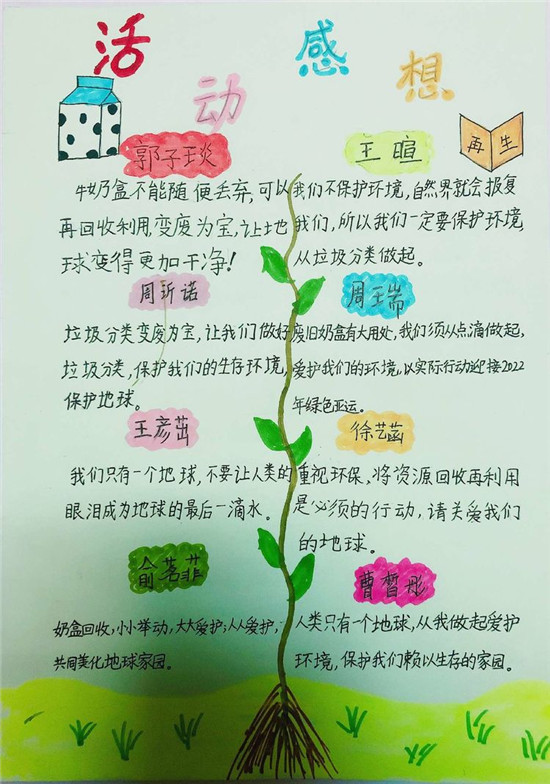 活动感想
再生
郭子琰
牛奶盒不能随便丢弃,可以
再回收利用,变废为宝,让地
球变得更加干净!
王暄
我们不保护环境,自然界就会报复
我们,所以我们一定要保护环境,
从垃圾分类做起。
周沂诺
垃圾分类变废为宝,让我们做好
垃圾分类,保护我们的生存环境,
保护地球。
周玊瑞
废旧奶盒有大用处,我们须从点滴做起,
爱护我们的环境,以实际行动迎接2022
年绿色亚运。
王彦茁
我们只有一个地球,不要让人类的
眼泪成为地球的最后一滴水。
徐艺菡
重视环保,将资源回收再利用
是必须的行动,请关爱我们
的地球。
俞茗菲
奶盒回收,小小举动,大大爱护;人人爱护,
共同美化地球家园。
曹皙彤
人类只有一个地球,从我做起爱护
环境,保护我们赖以生存的家园。